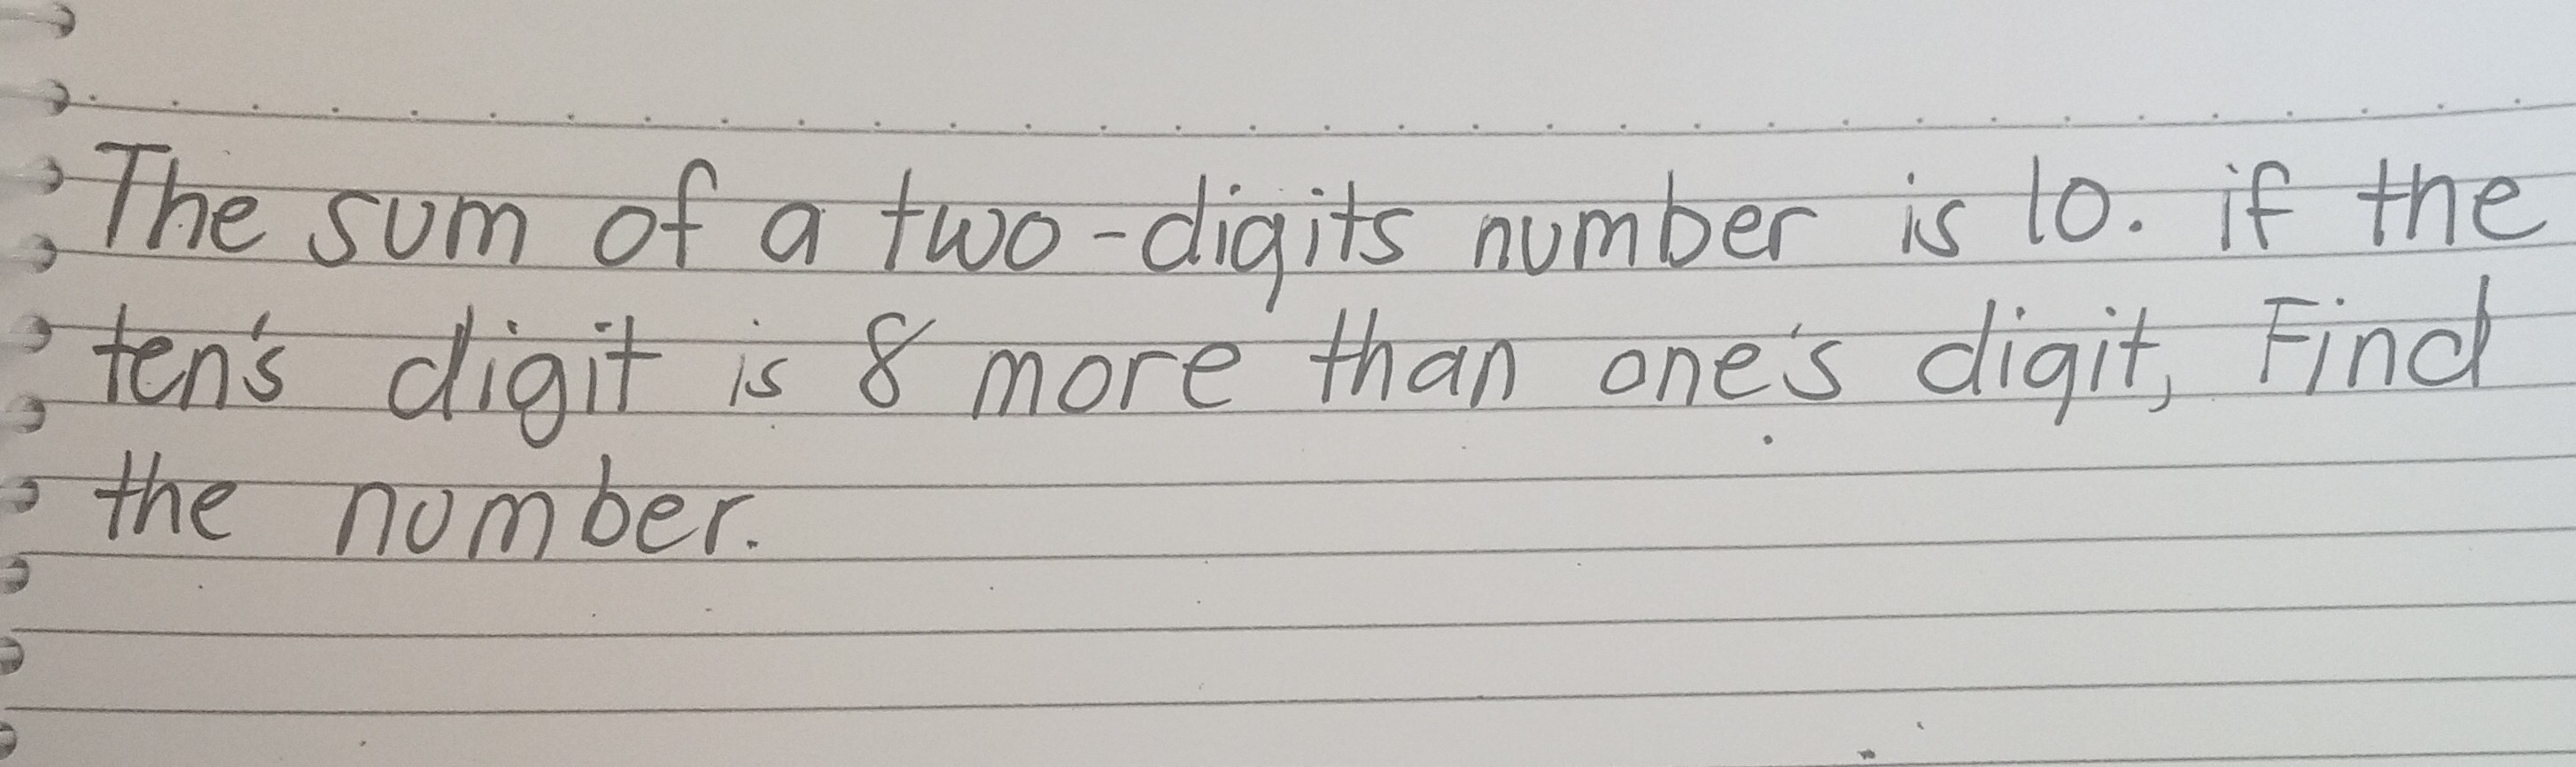 The sum of a two-digits number is 10. if the
ten's digit is 8 more than one's digit, Find
the number.